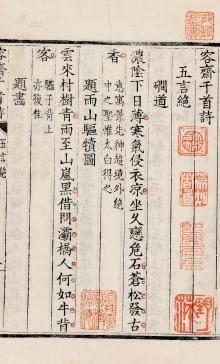 容齋千首詩
五言絶
磵道
濃陰下日薄寒氣侵衣凉坐久戀危石蒼松發古
香
意寓景先神超境外絶
中之聖雅太白得之
題雨山驅犢圖
雲來村樹青雨至山嵐黑借問灞橋人何如牛背
客
驢子背上
亦復佳
題畫
容齋千首詩
五言絶